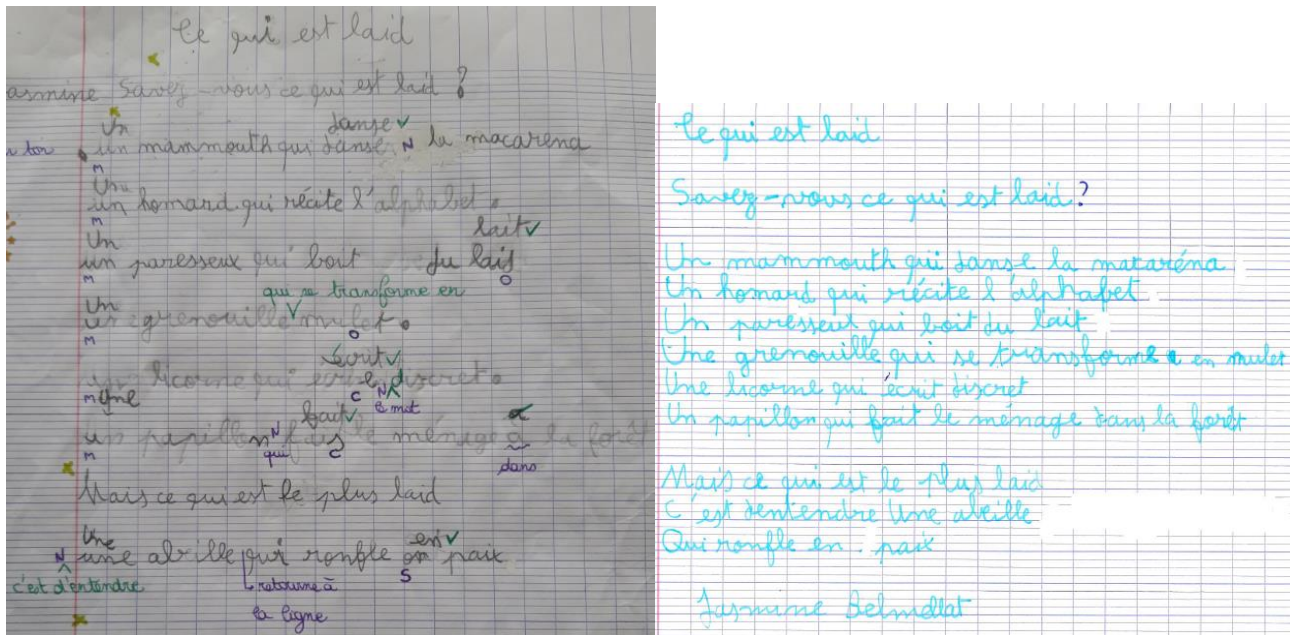 Ce qui est laid
asmine Savez-vous ce qui est laid ?
Un danse ✓
un mammouth qui danse N la macarena
m
Un
un homard qui récite l'alphabet.
m
Un lait ✓
un paresseux qui boit du lais
m O
Un qui se transforme en
une grenouille mulet.
m O
écrit ✓
un licorne qui écrie discret.
m Une C N le mot
fait ✓
un papillon fais le ménage à la forêt
m N qui C dans
Mais ce qui est le plus laid
Une en ✓
N une abeille qui ronfle on paix
S
c'est d'entendre retourne à
la ligne
Ce qui est laid
Savez-vous ce qui est laid ?
Un mammouth qui danse la mataréna
Un homard qui récite l'alphabet
Un paresseux qui boit du lait
Une grenouille qui se transforme en mulet
Une licorne qui écrit discret
Un papillon qui fait le ménage dans la forêt
Mais ce qui est le plus laid
C'est dentendre Une abeille
Qui ronfle en paix
Jasmine